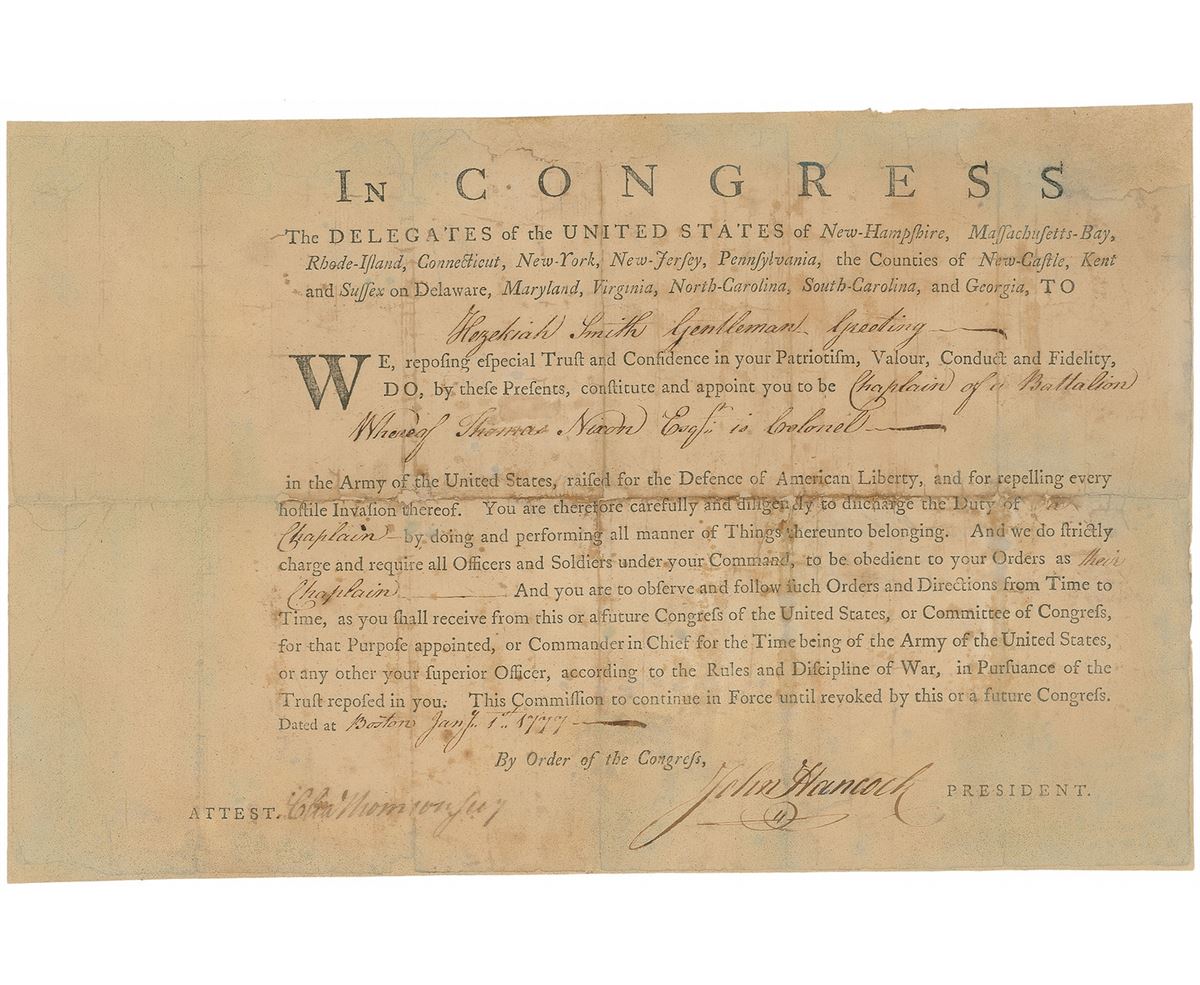 IN CONGRESS
The DELEGATES of the UNITED STATES of New-Hampſhire, Maſſachuſetts-Bay,
Rhode-Iſland, Connecticut, New-York, New-Jerſey, Pennſylvania, the Counties of New-Caſtle, Kent
and Suſſex on Delaware, Maryland, Virginia, North-Carolina, South-Carolina, and Georgia, TO
Hezekiah Smith Gentleman Greeting
WE, repoſing eſpecial Truſt and Confidence in your Patriotiſm, Valour, Conduct and Fidelity,
DO, by theſe Preſents, conſtitute and appoint you to be Chaplain of a Battalion
Whereof Thomas Nixon Esqr. is Colonel
in the Army of the United States, raiſed for the Defence of American Liberty, and for repelling every
hoſtile Invaſion thereof. You are therefore carefully and diligently to diſcharge the Duty of
Chaplain by doing and performing all manner of Things thereunto belonging. And we do ſtrictly
charge and require all Officers and Soldiers under your Command, to be obedient to your Orders as their
Chaplain And you are to obſerve and follow ſuch Orders and Directions from Time to
Time, as you ſhall receive from this or a future Congreſs of the United States, or Committee of Congreſs,
for that Purpoſe appointed, or Commander in Chief for the Time being of the Army of the United States,
or any other your ſuperior Officer, according to the Rules and Diſcipline of War, in Purſuance of the
Truſt repoſed in you. This Commiſſion to continue in Force until revoked by this or a future Congreſs.
Dated at Boston Jany. 1st. 1777
By Order of the Congreſs,
John Hancock PRESIDENT.
ATTEST. Cha Thomson Secy